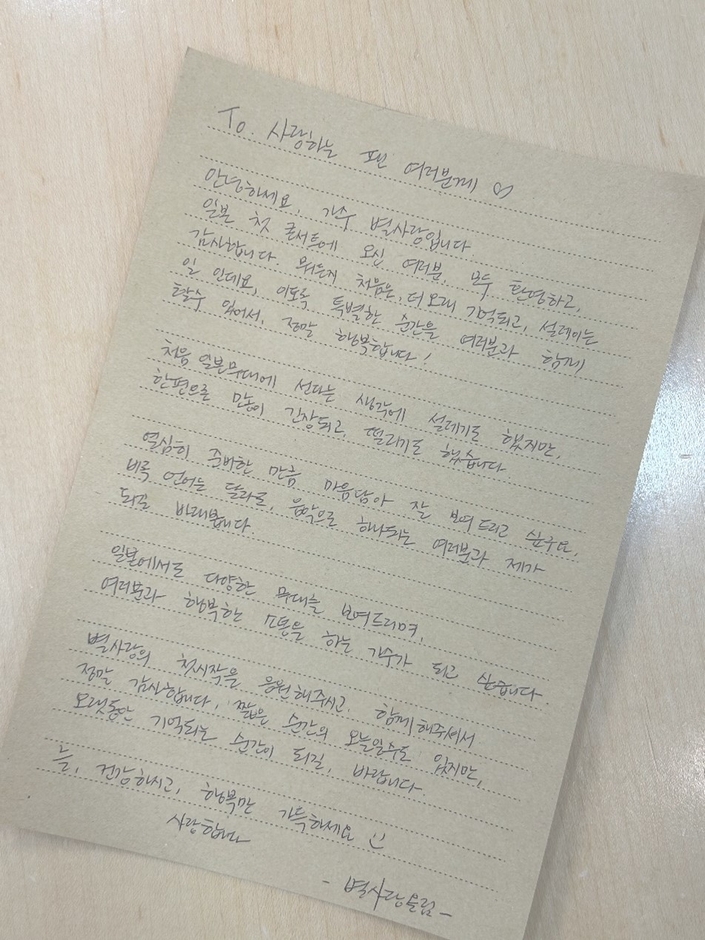 To. 사랑하는 팬 여러분께 ♡
안녕하세요, 가수 별사랑입니다
일본 첫 콘서트에 오신 여러분, 모두 환영하고,
감사합니다 뭐든지 처음은, 더 오래 기억되고, 설레이는
일 인데요, 이토록 특별한 순간을 여러분과 함께
할수 있어서, 정말 행복합니다!
처음 일본무대에 선다는 생각에 설레기도 했지만,
한편으로 많이 긴장되고, 떨리기도 했습니다.
열심히 준비한 만큼 마음담아 잘 보여드리고 싶구요,
비록 언어는 달라도, 음악으로 하나되는 여러분과 제가
되길 바래봅니다.
일본에서도 다양한 무대를 보여드리며,
여러분과 행복한 소통을 하는 가수가 되고 싶습니다
별사랑의 첫시작을 응원해주시고 함께해주셔서
정말 감사합니다, 짧은 순간의 오늘일수도 있지만,
오랫동안 기억되는 순간이 되길, 바랍니다
늘, 건강하시고, 행복만 가득하세요 :)
사랑합니다
- 별사랑올림 -